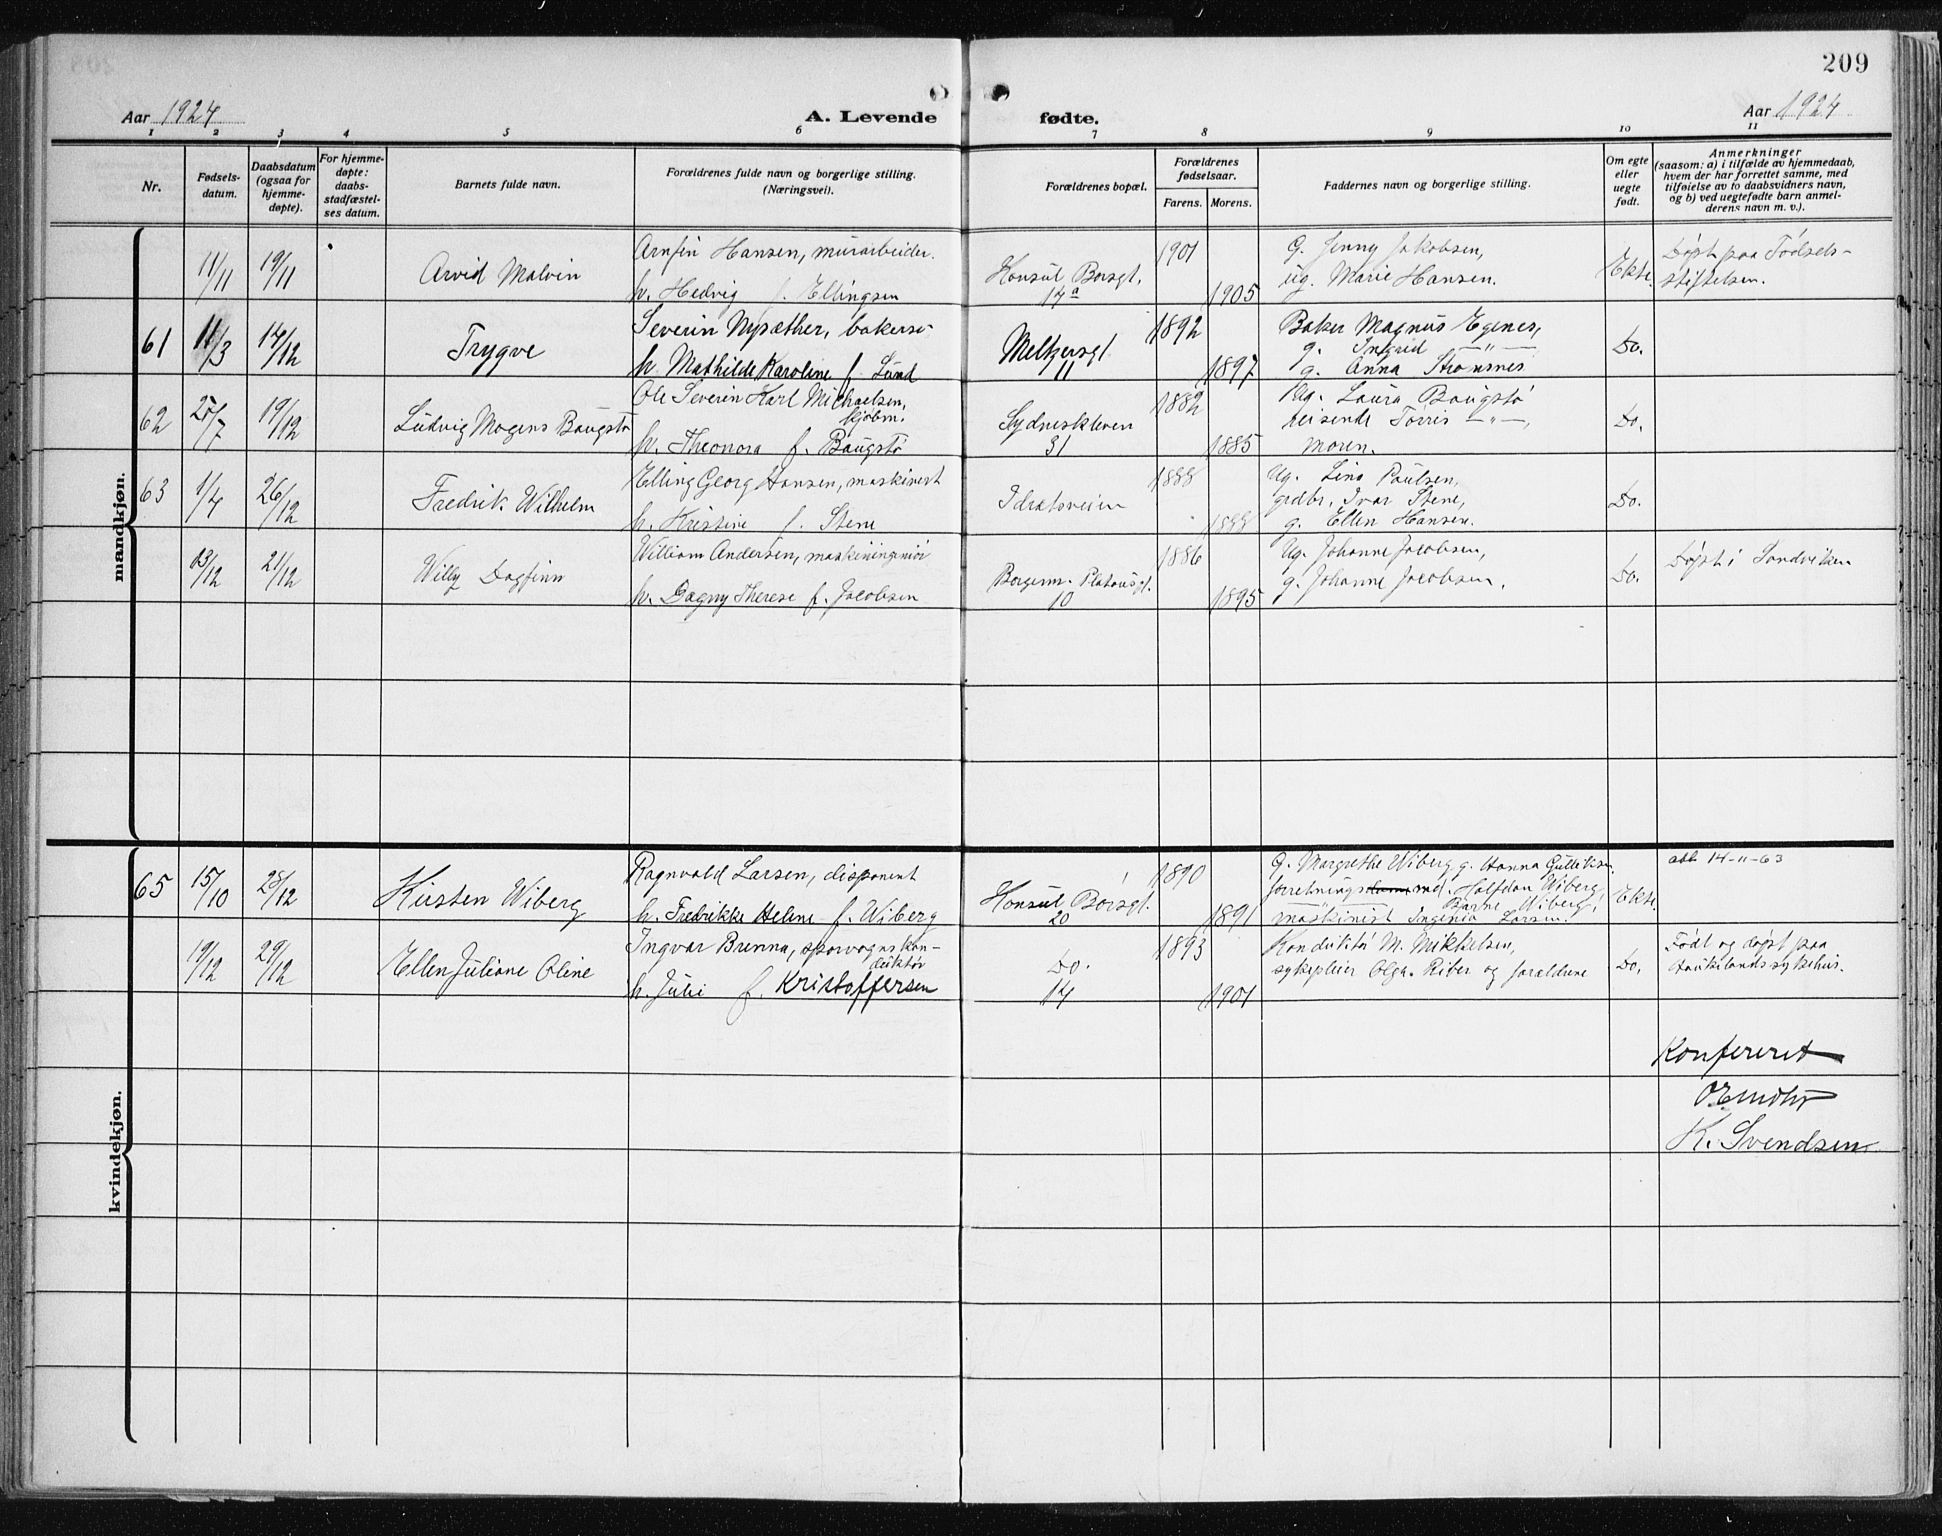 209
Aar 1924
A. Levende fødte.
Aar 1924
1 2 3 4 5 6 7 8 9 10 11
Nr.
Fødsels-
datum.
Daabsdatum
(ogsaa for
hjemme-
døpte).
For hjemme-
døpte:
daabs-
stadfæstel-
ses datum.
Barnets fulde navn.
Forældrenes fulde navn og borgerlige stilling.
(Næringsvei).
Forældrenes bopæl.
Forældrenes
fødselsaar.
Farens. Morens.
Faddernes navn og borgerlige stilling.
Om egte
eller
uegte
født.
Anmerkninger
(saasom: a) i tilfælde av hjemmedaab,
hvem der har forrettet samme, med
tilføielse av to daabsvidners navn,
og b) ved uegtefødte barn anmel-
derens navn m. v.).
mandkjøn.
11/11 19/11 Arvid Malvin
Arnfin Hansen, murarbeider.
h. Hedvig f. Ellingsen
Konsul Borsgt.
14a
1901
1905
g. Jenny Jakobsen,
ug. Marie Hansen.
Ekte.
Døpt paa Fødsels-
stiftelsen.
61 11/3 14/12 Trygve
Severin Nysæther, bakersv
h. Mathilde Karoline f. Lund
Meltzersgt
11
1892
1897
Baker Magnus Egenes,
g. Ingrid —"—
g. Anna Stromsnes
Do.
62 25/7 19/12 Ludvig Mogens Baugstø
Ole Severin Karl Michaelsen,
kjøbm.
h. Theonora f. Baugstø
Sydneskleven
31
1882
1885
Ug. Laura Baugstø
reisende Torris —"—,
moren.
Do.
63 1/4 26/12 Fredrik Wilhelm
Elling Georg Hansen, maskinist
h. Kristine f. Stene
Idrætsveien
1888
1888
Ug. Lina Paulsen,
grdbr. Ivar Stene,
g. Ellen Hansen.
Do.
03/12 21/12 Willy Dagfinn
William Andersen, maskiningeniør
h. Dagny Therese f. Jacobsen
Borgerm. Platousgt.
10
1886
1895
Ug. Johanne Jacobsen,
g. Johanne Jacobsen.
Do.
Døpt i Sandviken
kvindekjøn.
65 15/10 28/12 Kirsten Wiberg
Ragnvald Larsen, disponent
h. Fredrikke Helene f. Wiberg
Konsul Børsgt.
20
1890
1891
g. Margrethe Wiberg g. Hanna Gulliksen
forretnings md. Halfdan Wiberg,
Barne Wiberg,
maskinist Ingenio Larsen.
Ekte.
att 14-11-63
19/12 29/12 Ellen Juliane Oline
Ingvar Brenna, sporvognskon-
duktør
h. Julie f. Kristoffersen
Do.
14
1893
1901
Konduktør M. Mikkelsen,
sykepleier Olga Riber og forældrene
Do.
Født og døpt paa
Haukelands sykehus.
Konfereret
K. Svendsen